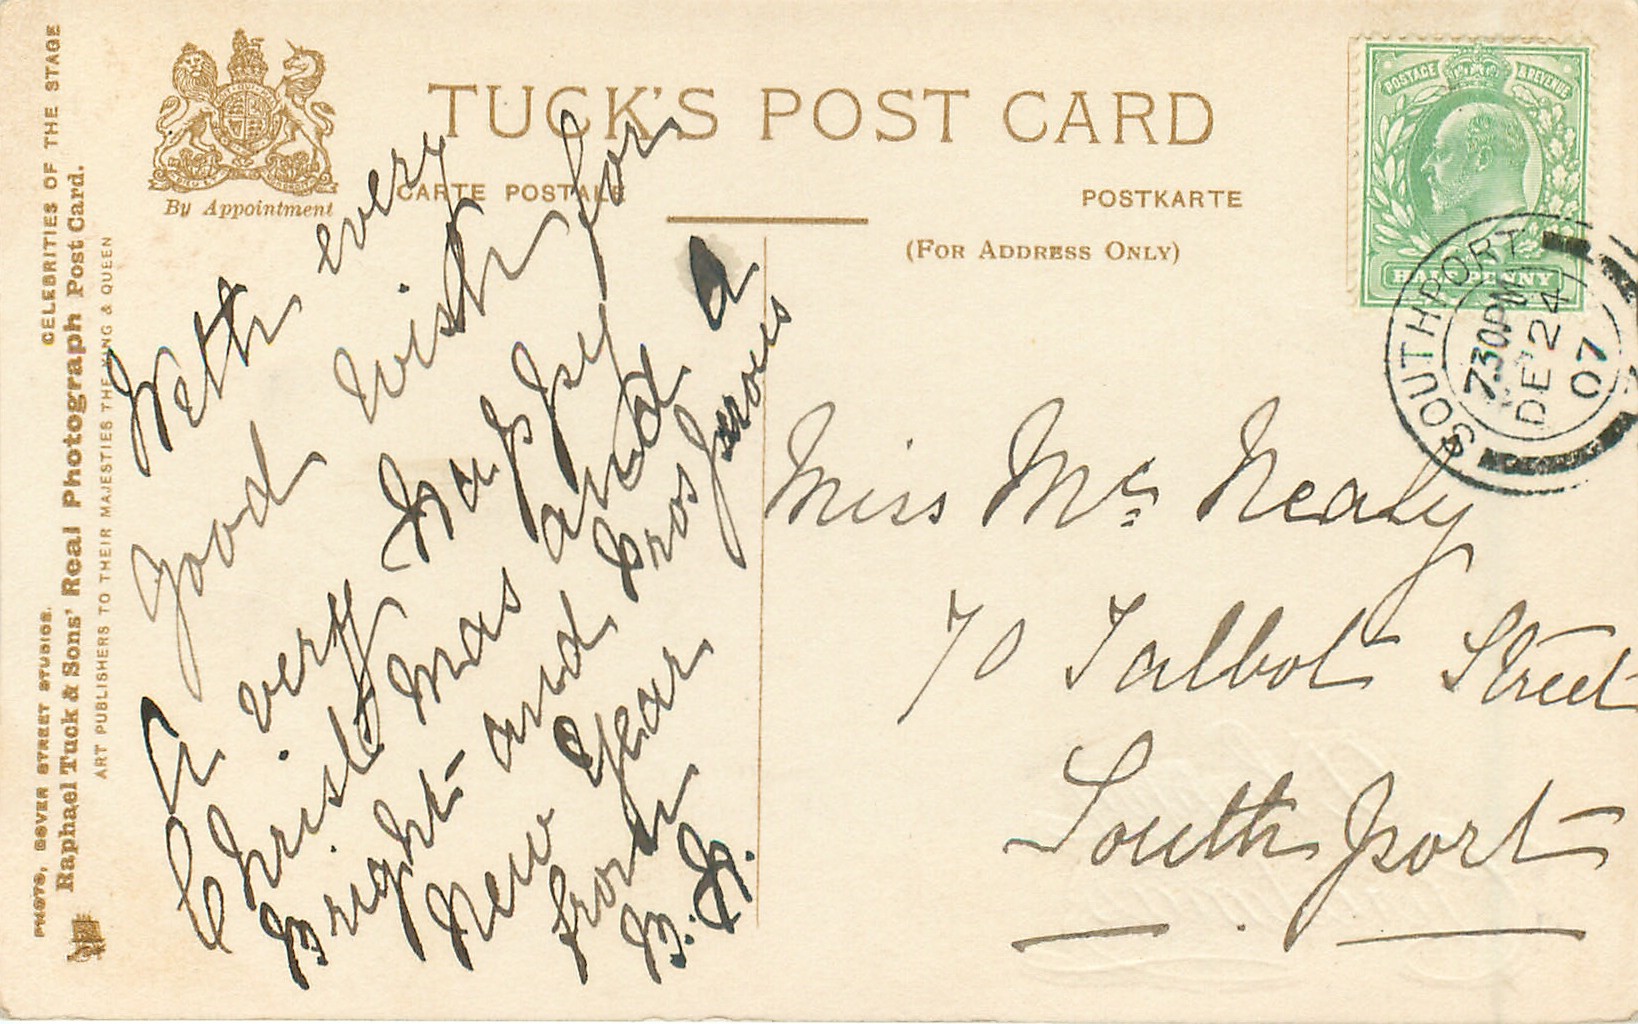 CELEBRITIES OF THE STAGE
PHOTO, DOVER STREET STUDIOS.
Raphael Tuck & Sons' Real Photograph Post Card.
ART PUBLISHERS TO THEIR MAJESTIES THE KING & QUEEN
By Appointment
TUCK'S POST CARD
CARTE POSTALE
POSTKARTE
(FOR ADDRESS ONLY)
POSTAGE & REVENUE
HALF PENNY
SOUTHPORT
7.30PM
DE 24
07
With every
good wish for
A very Happy
Christmas and a
Bright and Prosperous
New Year
from
B. H.
Miss Mc Nealy
70 Talbot Street
South port